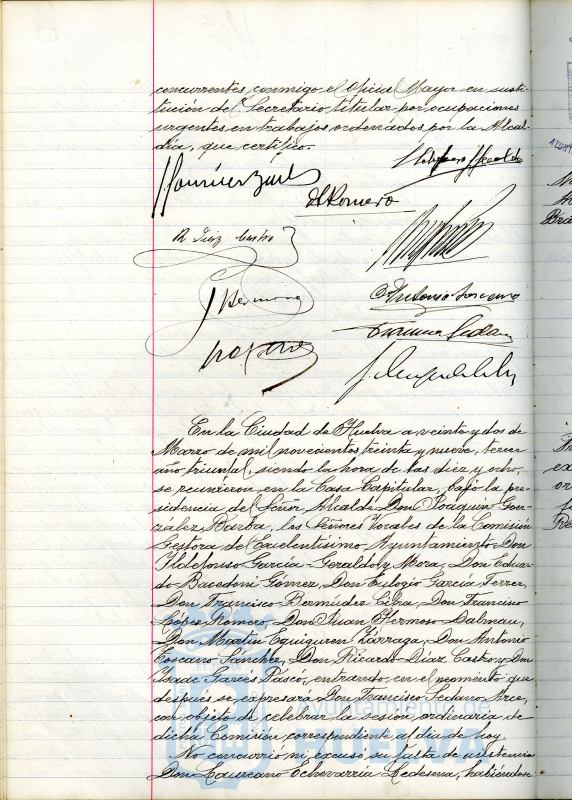 concurrentes, conmigo el Oficial Mayor en susti-
tución del Secretario titular por ocupaciones
urgentes en trabajos ordenados por la Alcal-
día, que certifico.
Romero
R Diaz Castro
J Hermoso
Antonio Toscano
En la Ciudad de Huelva a veinte y dos de
Marzo de mil novecientos treinta y nueve, tercer
año triunfal, siendo la hora de las diez y ocho,
se reunieron en la Casa Capitular, bajo la pre-
sidencia del Señor Alcalde Don Joaquín Gon-
zález Barba, los Señores Vocales de la Comisión
Gestora del Excelentísimo Ayuntamiento Don
Ildefonso García-Geraldo y Mora, Don Eduar-
do Bacedoni Gómez, Don Eulogio García Ferrer,
Don Francisco Bermúdez Libra, Don Francisco
López Romero, Don Juan Hermoso Dalmau,
Don Martín Eguiguren Kárraga, Don Antonio
Toscano Sánchez, Don Ricardo Díaz Castro y Don
Isaac Garcés Pascó, entrando, en el momento que
después se expresará Don Francisco Sedano Arce,
con objeto de celebrar la sesión ordinaria de
dicha Comisión correspondiente al día de hoy.
No concurrió ni excusó su falta de asistencia
Don Laureano Echevarría Ledesma, habiéndose
Ayuntamiento de
HUELVA